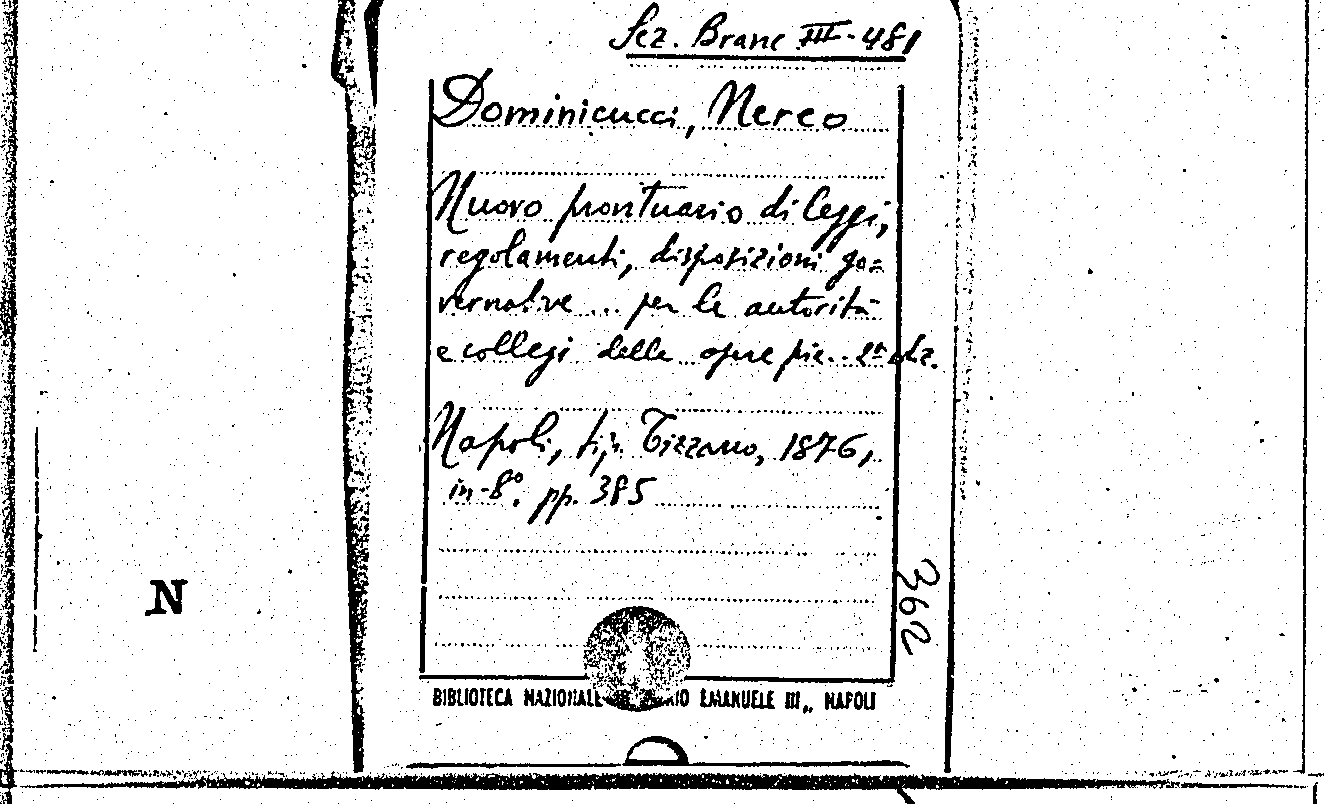 Sez. Branc III-481
Dominicucci, Nereo
Nuovo prontuario di leggi,
regolamenti, disposizioni go=
vernative ... per le autorità
e collegi delle opere pie.. 2ª ediz.
Napoli, tip. Tizzano, 1876,
in-8º. pp. 385
362
N
BIBLIOTECA NAZIONALE EMANUELE III„ NAPOLI